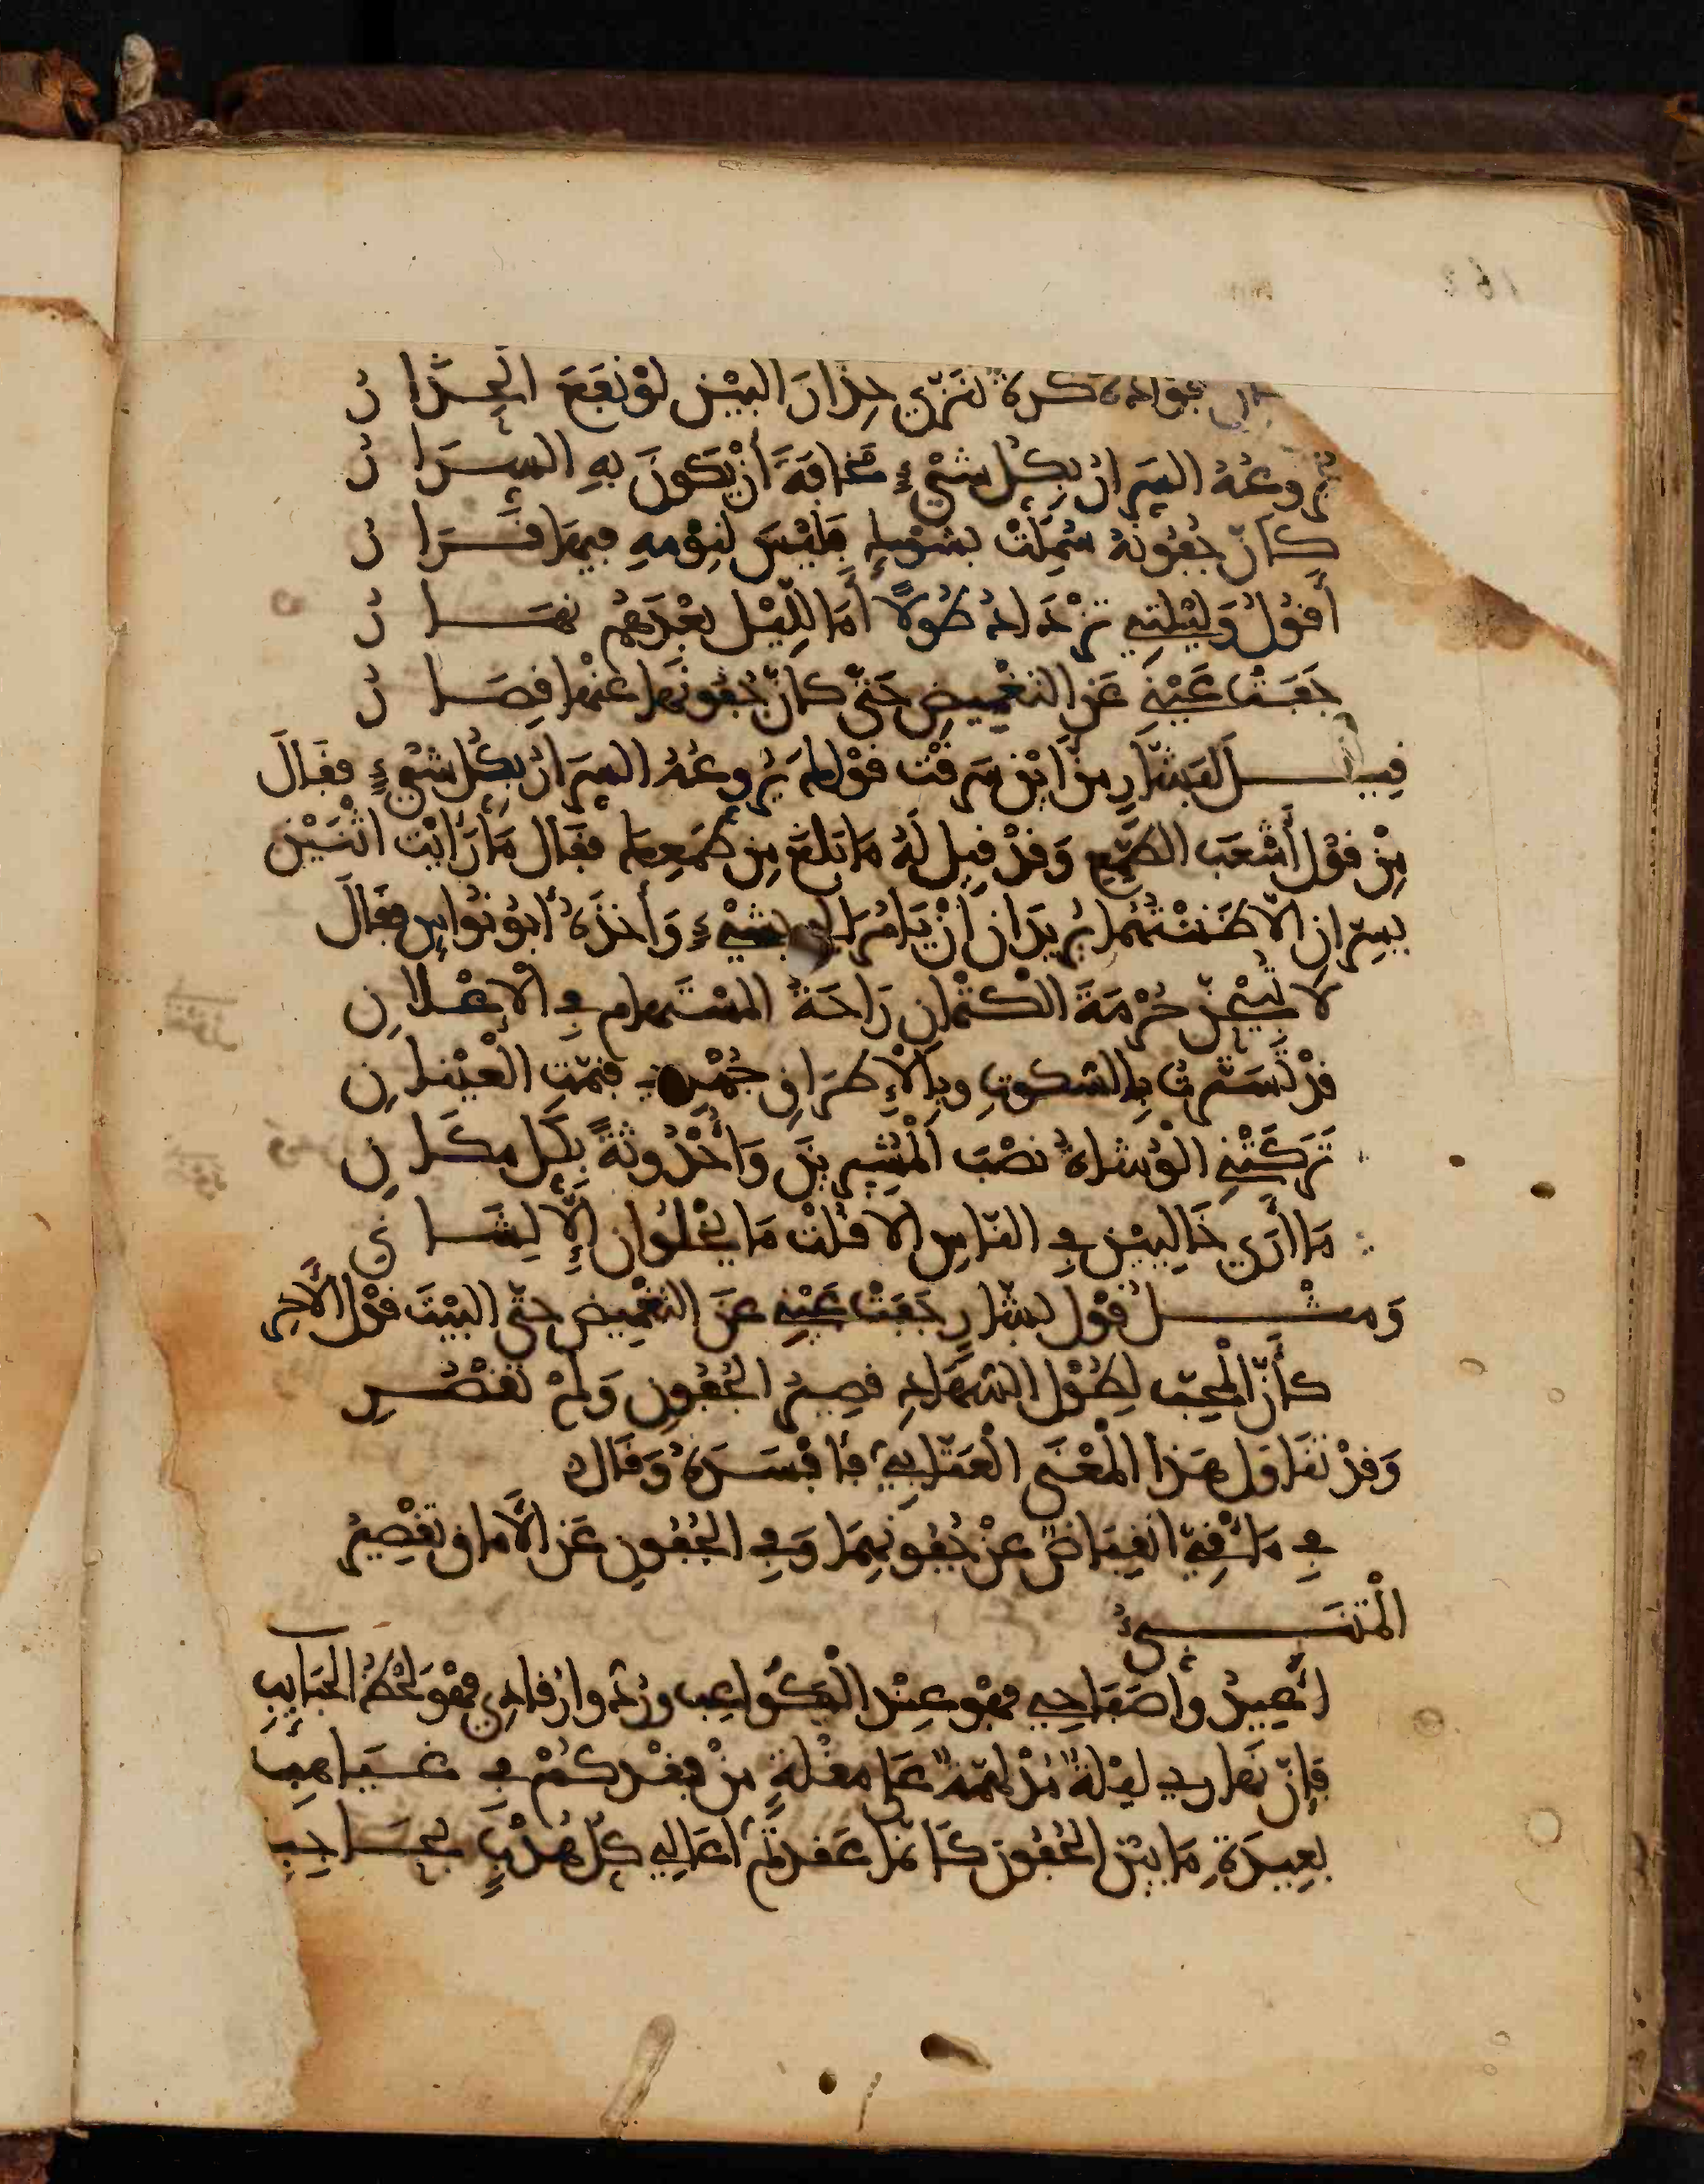 فؤاده كرة تنزى حِذارَ البَيْنِ لوْ نَفَعَ الحِذارُ
يُرَوِّعُهُ السِّرارُ بِكُلِّ شَيْءٍ مَخَافَةَ أَنْ يَكُونَ بِهِ السِّرَارُ
كَأَنَّ جُفُونَهُ سُمِلَتْ بِشَوْكٍ فَلَيْسَ لِنَوْمِهِ فِيهَا قَرَارُ
أَقُولُ وَلَيْلَتِي تَزْدَادُ طُولًا أَمَا لِلَّيْلِ بَعْدَهُمُ نَهَارُ
جَفَتْ عَيْنِي عَنِ التَّغْمِيضِ حَتَّى كَأَنَّ جُفُونَهَا عَنْهَا قِصَارُ
قِيلَ لِبَشَّارٍ مِنْ أَيْنَ سَرَقْتَ قَوْلَكَ يُرَوِّعُهُ السِّرَارُ بِكُلِّ شَيْءٍ فَقَالَ
مِنْ قَوْلِ أَشْعَبَ الطَّمِعِ وَقَدْ قِيلَ لَهُ مَا بَلَغَ مِن طَمَعِكَ فَقَالَ مَا رَأَيْتُ اثْنَيْنِ
يسِرّانِ إلّا ظَنَنْتُهُمَا يُرِيدَانِ أَنْ يَأْمُرَا لِي بِشَيْءٍ وَأَخَذَهُ أَبُو نُوَاسٍ فَقَالَ
لَا تُبِيحَنَّ حُرْمَةَ الْكِتْمَانِ رَاحَةُ الْمُسْتَهَامِ فِي الْإِعْلَانِ
قَدْ تَسَتَّرْتُ بِالسُّكُوتِ وَبِالْإِطْرَاقِ جُهْدِي فَنَمَّتِ الْعَيْنَانِ
تَرَكَتْنِي الْوُشَاةُ نَصْبَ الْمُشِيرِينَ وَأُحْدُوثَةً بِكُلِّ مَكَانِ
مَا أَرَى خَالِيَيْنِ فِي النَّاسِ إِلَّا قُلْتُ مَا يَخْلُوَانِ إِلَّا لِشَانِي
وَمِثْلُ قَوْلِ بَشَّارٍ جَفَتْ عَيْنِي عَنِ التَّغْمِيضِ حَتَّى الْبَيْتَ قَوْلُ الْآخَرِ
كَأَنَّ الْمُحِبَّ لِطُولِ السُّهَادِ قَصِيرُ الْجُفُونِ وَلَمْ تَقْصُرِ
وَقَدْ تَنَاوَلَ هَذَا الْمَعْنَى الْعَتَّابِيُّ فَأَفْسَدَهُ وَقَالَ
فِي مَآقِيَّ انْقِبَاضٌ عَنْ جُفُونِهِمَا وَفِي الْجُفُونِ عَنِ الْآمَاقِ تَقْصِيرُ
الْمُتَنَبِّيُ
أَعِيدُوا صَبَاحِي فَهْوَ عِنْدَ الْكَوَاعِبِ وَرُدُّوا رُقَادِي فَهْوَ لَحْظُ الْحَبَائِبِ
فَإِنَّ نَهَارِي لَيْلَةٌ مُدْلَهِمَّةٌ عَلَى مُقْلَةٍ مِنْ فَقْدِكُمْ فِي غَيَاهِبِ
بَعِيدَةِ مَا بَيْنَ الْجُفُونِ كَأَنَّمَا عَقَدْتُمْ أَعَالِي كُلِّ هُدْبٍ بِحَاجِبِ